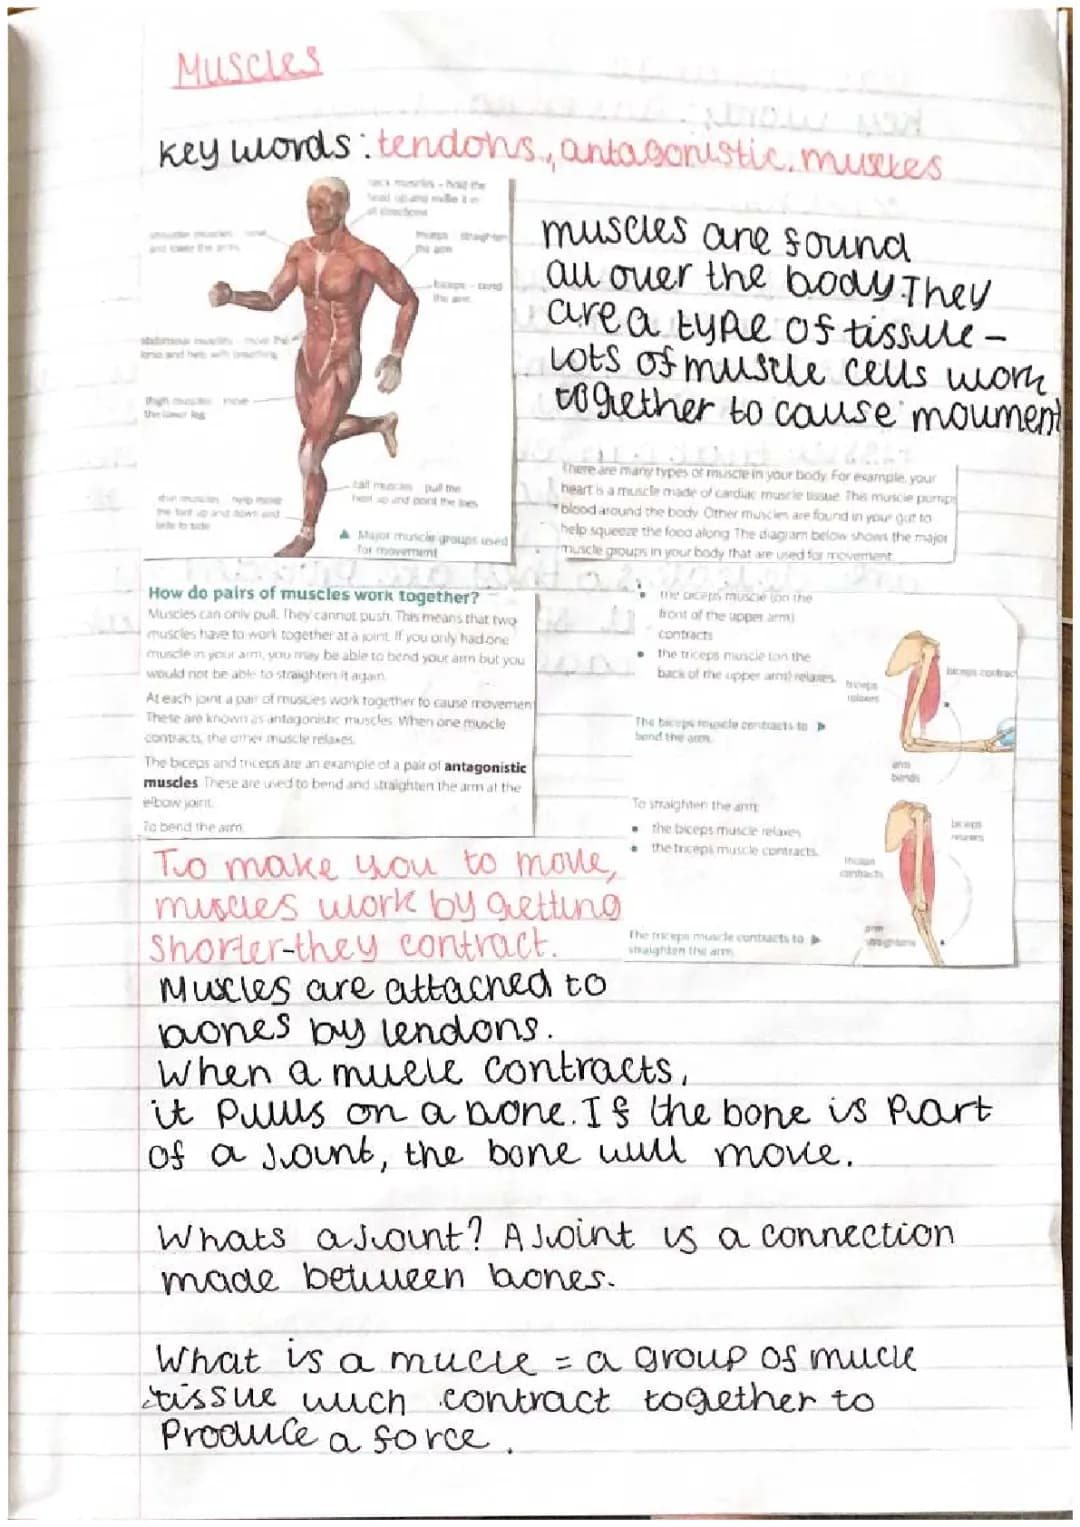 Muscles
key words: tendons, antagonistic muscles
neck muscles - hold the
head up and move it in
all directions
shoulder muscles move
and lower the arms
triceps straighten
the arm
biceps - bend
the arm
abdominal muscles move the
torso and help with breathing
thigh muscles move
the lower leg
calf muscles pull the
heel up and point the toes
shin muscles help move
the foot up and down and
side to side
▲ Major muscle groups used
for movement
muscles are found
all over the body. They
are a type of tissue -
Lots of muscle cells work
together to cause moument
There are many types of muscle in your body. For example, your
heart is a muscle made of cardiac muscle tissue. This muscle pumps
blood around the body. Other muscles are found in your gut to
help squeeze the food along. The diagram below shows the major
muscle groups in your body that are used for movement.
How do pairs of muscles work together?
Muscles can only pull. They cannot push. This means that two
muscles have to work together at a joint. If you only had one
muscle in your arm, you may be able to bend your arm but you
would not be able to straighten it again.
At each joint a pair of muscles work together to cause movemen
These are known as antagonistic muscles. When one muscle
contracts, the other muscle relaxes.
The biceps and triceps are an example of a pair of antagonistic
muscles. These are used to bend and straighten the arm at the
elbow joint.
To bend the arm:
• the biceps muscle (on the
front of the upper arm)
contracts
• the triceps muscle (on the
back of the upper arm) relaxes.
The biceps muscle contracts to ▶
bend the arm.
triceps
relaxes
biceps contract
arm
bends
To straighten the arm:
• the biceps muscle relaxes
• the triceps muscle contracts.
The triceps muscle contracts to ▶
straighten the arm.
biceps
relaxes
triceps
contracts
arm
straightens
To make you to move,
muscles work by getting
shorter-they contract.
Muscles are attached to
bones by tendons.
When a mucle contracts,
it pulls on a bone. If the bone is part
of a joint, the bone will move.
Whats a joint? A joint is a connection
made between bones.
What is a mucle = a group of mucle
tissue wich contract together to
Produce a force.